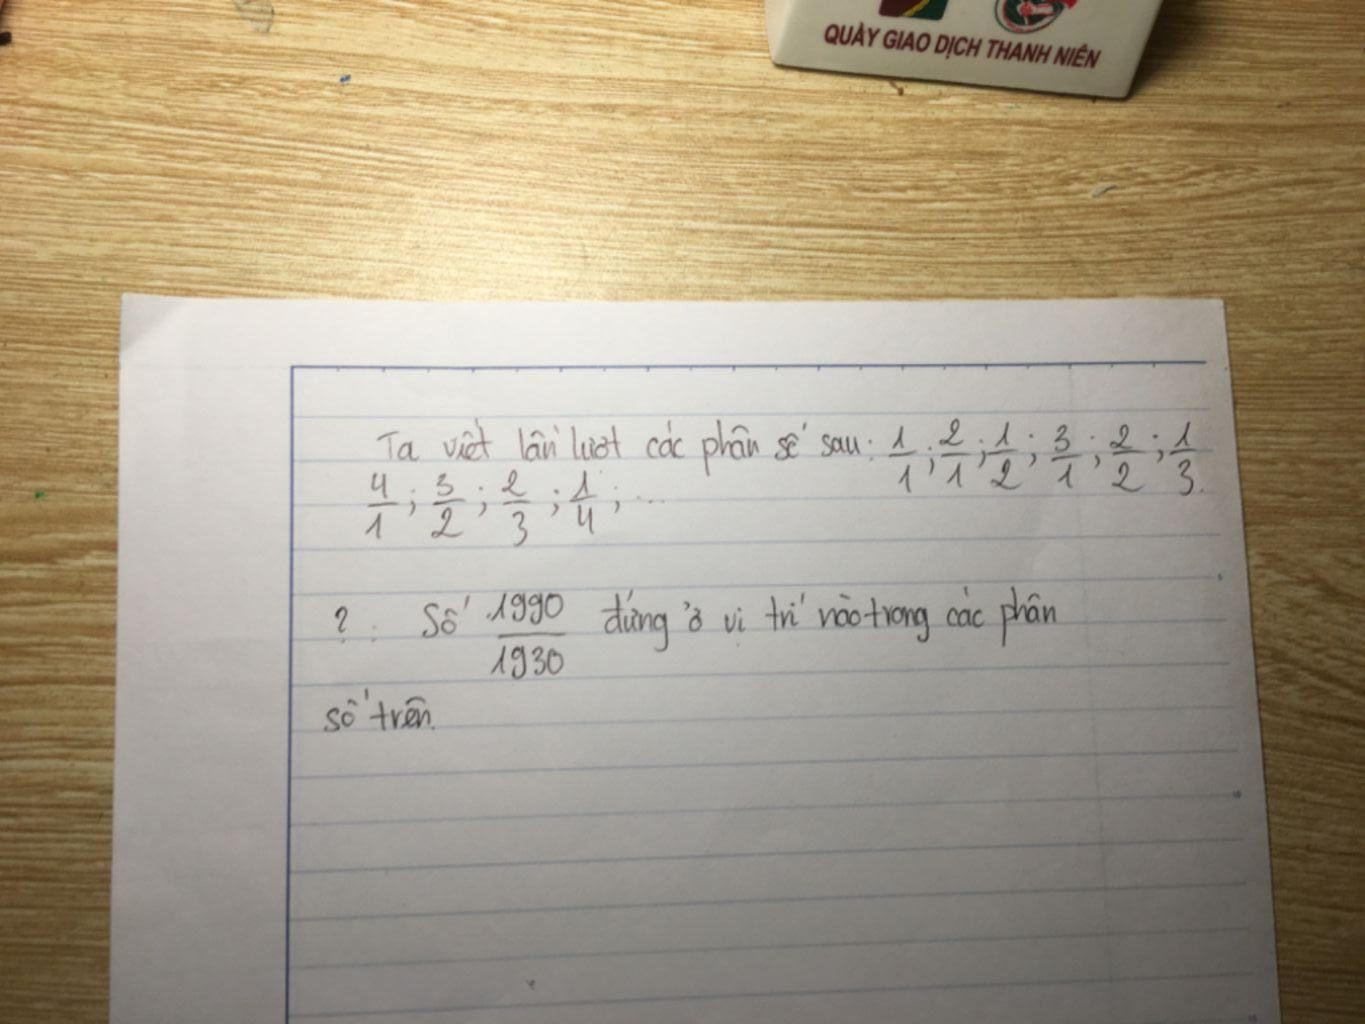 QUẦY GIAO DỊCH THANH NIÊN
Ta viết lần lượt các phân số sau: 1/1; 2/1; 1/2; 3/1; 2/2; 1/3.
4/1; 3/2; 2/3; 1/4; ...
?: Số 1990/1930 đứng ở vị trí nào trong các phân
số trên.
5
10
15